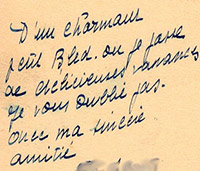 D'un charmant
petit Bled. où je passe
de délicieuses vacances
je vous oublie pas.
avec ma sincère
amitié